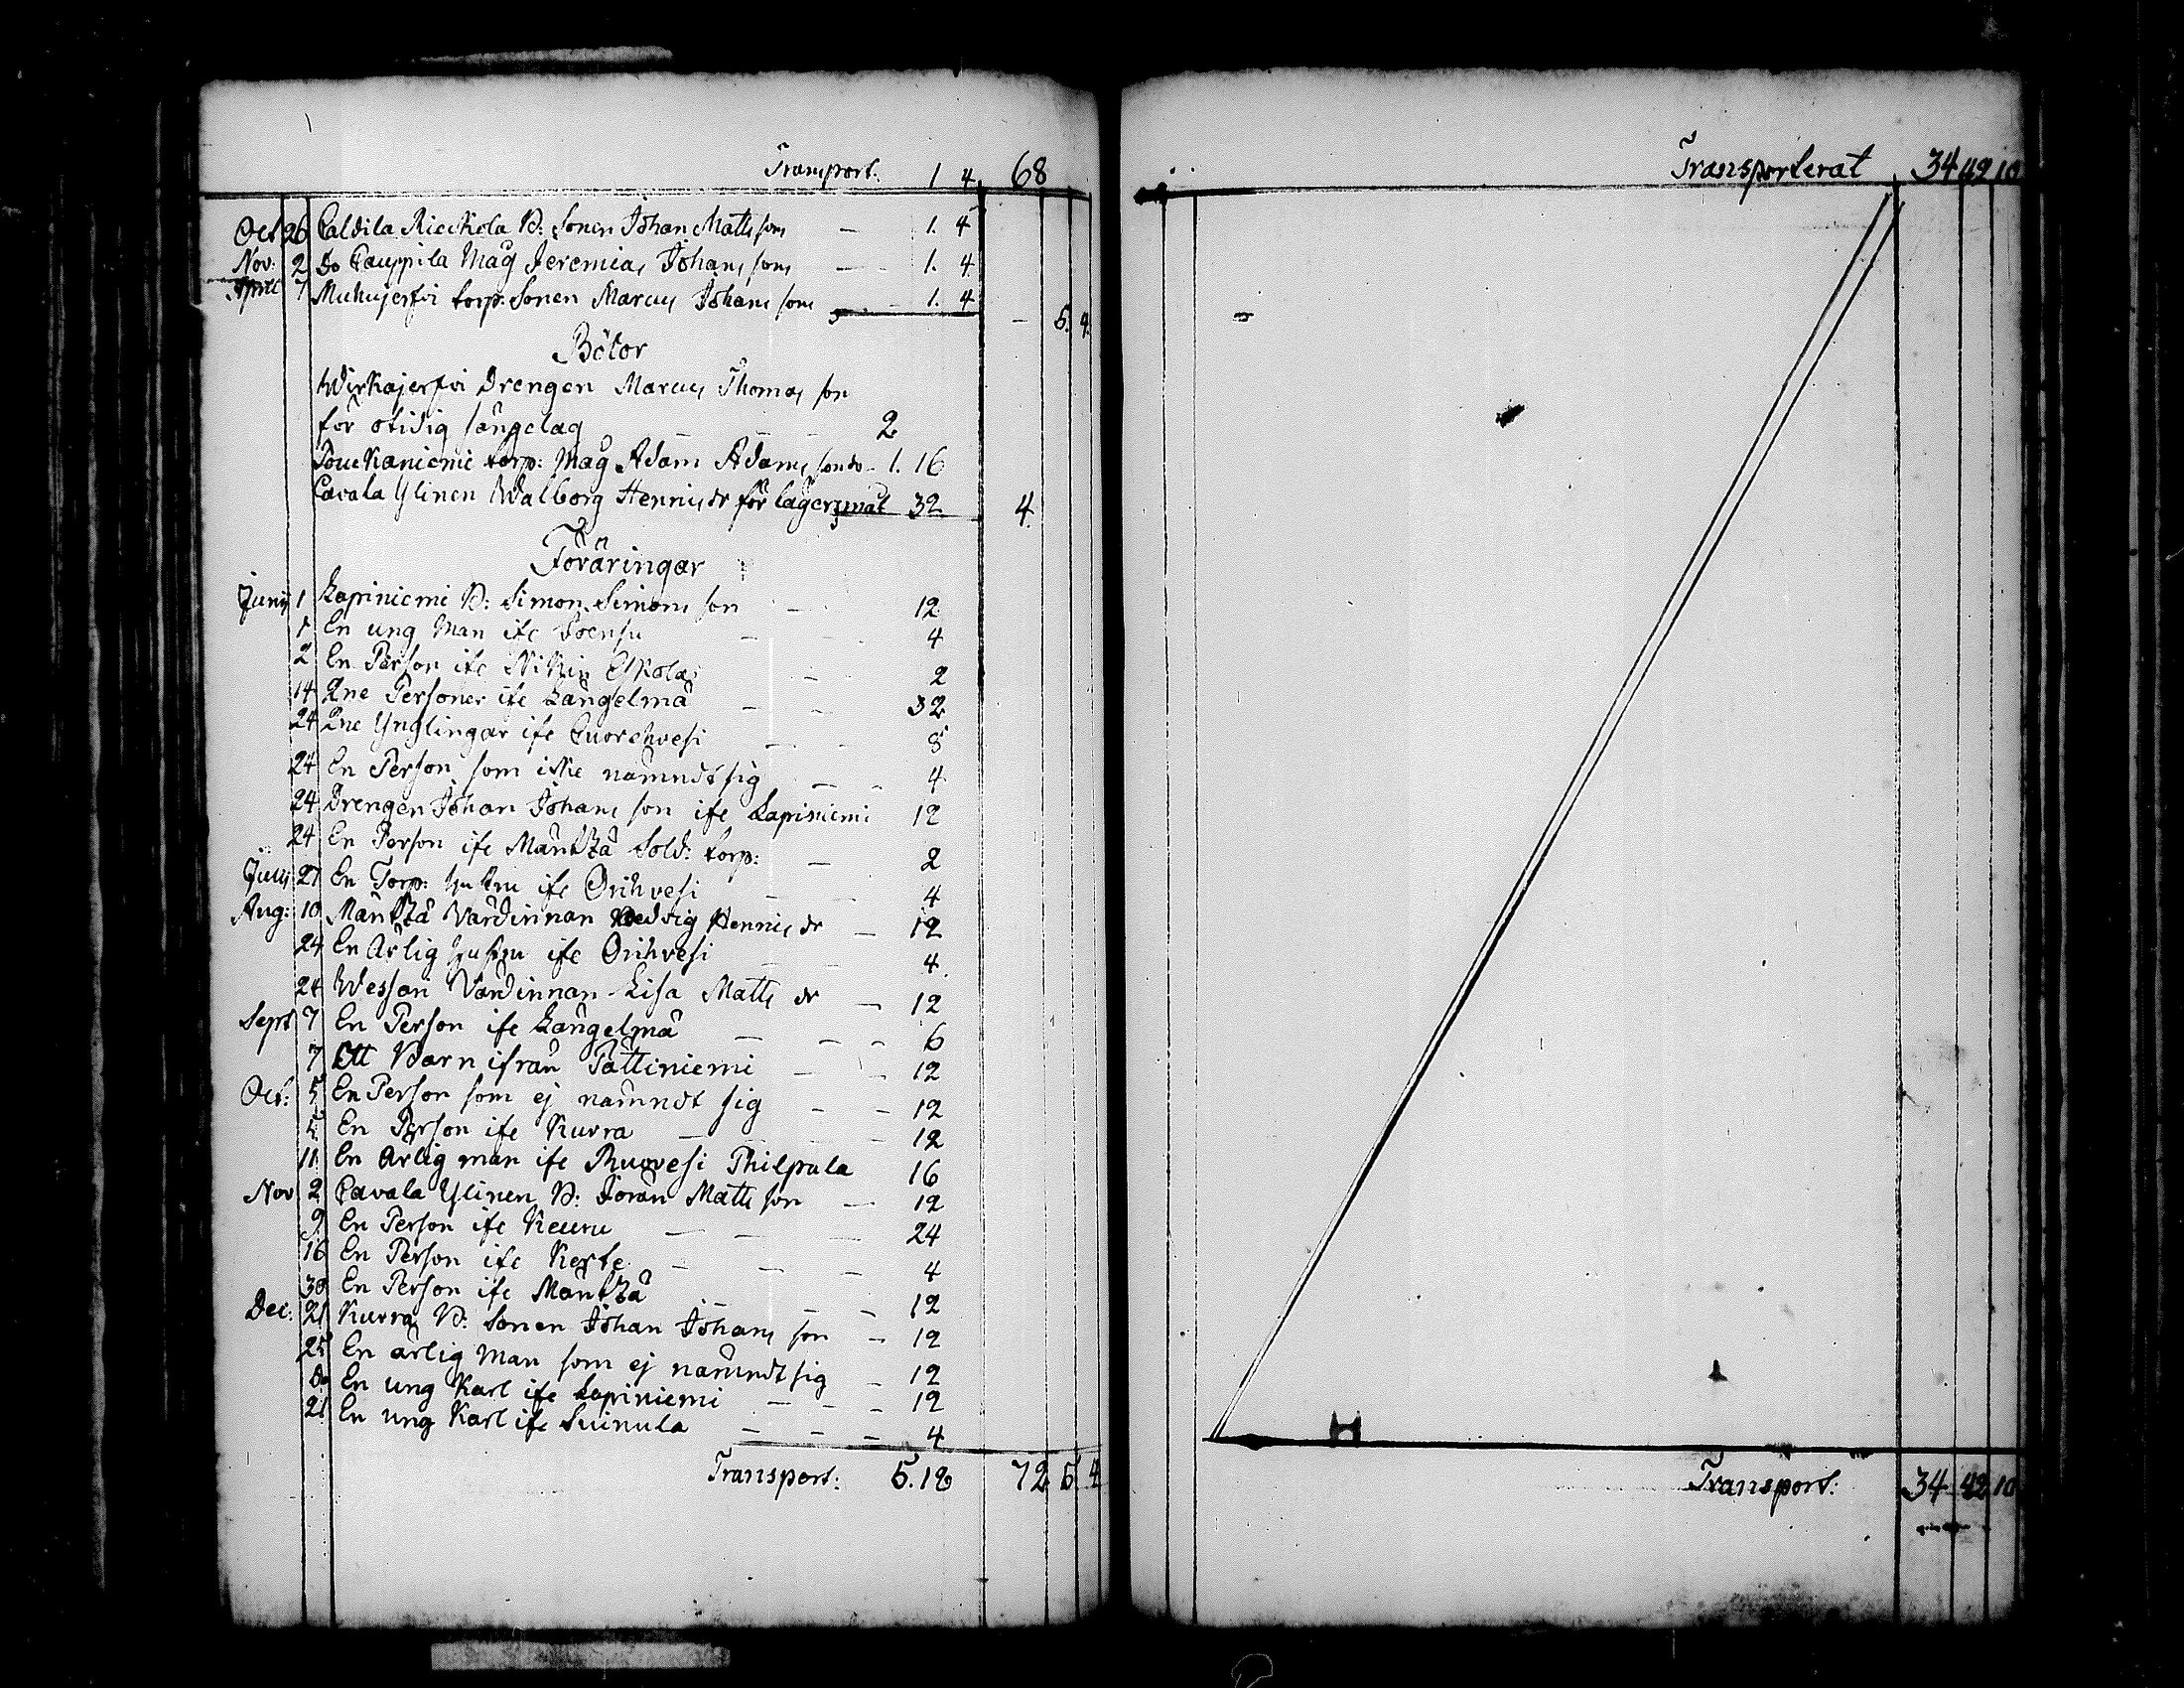 Transport: 1 4 68
Oct 26 Caldila Rieckola B: Sonen Johan Matts son — 1. 4
Nov: 2 Do Cauppila Måg Jeremias Johans son — 1. 4
April 7 Muhujerfvi torp: Sonen Marcus Johans son — 1. 4
— 5. 4.
Böter
Wirkajerfvi Drengen Marcus Thomas son
för otidig sängelag — 2
Toukaniemi torp: Måg Adam Adams son do — 1. 16
Cavala Ylinen Walborg Henrics dr för lägersmål 32 4.
Föräringar
Junij 1 Lapiniemi B: Simon Simons son — 12
1 En ung Man ifr Joensu — 4
2 En Person ifr Eskola — 2
14 2ne Personer ifr Längelmä — 32
24 2ne Ynglingar ifr Cuorehvesi — 8
24 En Person som icke nämndt sig — 4
24 Drengen Johan Johans son ifr Lapiniemi 12
24 En Person ifr Mänttä Sold: torp: — 2
27 En Torp: hustru ifr Orihvesi — 4
Aug: 10 Mänttä Värdinnan Hedvig Henrics dr — 12
24 En Ärlig hustru ifr Orihvesi 4
24 Wessan Värdinnan Lisa Matts dr — 12
Sept 7 En Person ifr Längelmä — 6
7 Ett Barn ifrån Pättiniemi — 12
Oct: 5 En Person som ej nämndt sig — 12
5 En Person ifr Kurra — 12
11 En Ärlig man ifr Ruovesi Philpula 16
Nov 2 Cavala Ylinen B: Jöran Matts son — 12
9 En Person ifr Keuru — 24
16 En Person ifr — 4
30 En Person ifr Mänttä 12
Dec: 21 Kurra B: Sonen Johan Johans son — 12
25 En ärlig Man som ej nämndt sig — 12
Do En ung Karl ifr Lapiniemi — 12
21 En ung Karl ifr Suinula — 4
Transport: 5. 12 72 5 4
Transporterat 34 42 10
Transport: 34 42 10